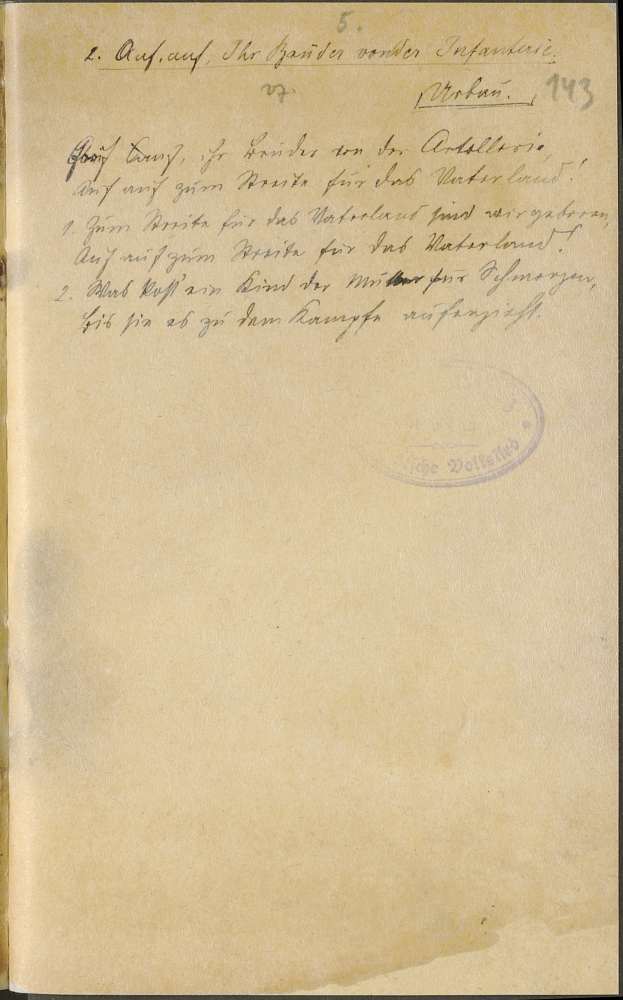 5.
2. Auf, auf, Ihr Brüder von der Infanterie.
27.
Urbau. 143
auf, ihr Brüder von der Artollerie,
Auf auf zum Streite für das Vaterland!
1. Zum Streite für das Vaterland sind wir geboren,
Auf auf zum Streite für das Vaterland!
2. Was kost' ein Kind der Mutter für Schmerzen,
bis sie es zu dem Kampfe auferzieht.
sche Volkslied